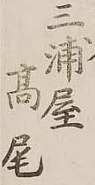 三浦屋
髙尾